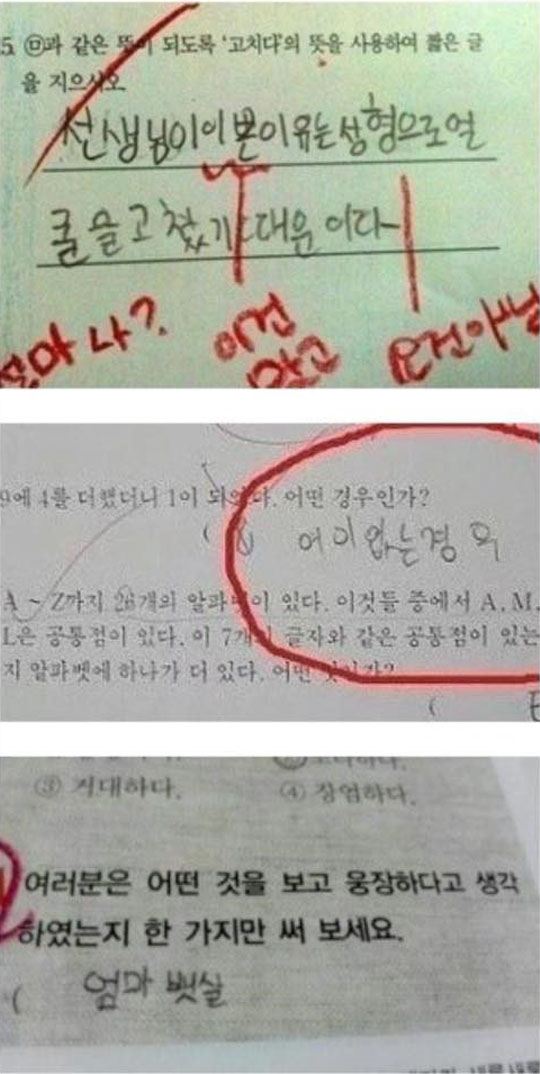 5. ㉤과 같은 뜻이 되도록 '고치다'의 뜻을 사용하여 짧은 글
을 지으시오
선생님이이쁜이유는성형으로얼
쿨슬고쳤기때문이다
나?
이건
맞고
요건아님
9에 4를 더했더니 1이 되었다. 어떤 경우인가?
( 어이없는경우
A ~ Z까지 26개의 알파벳이 있다. 이것들 중에서 A, M,
L은 공통점이 있다. 이 7개의 글자와 같은 공통점이 있는
지 알파벳에 하나가 더 있다. 어떤 것인가?
( E
③ 거대하다. ④ 장엄하다.
여러분은 어떤 것을 보고 웅장하다고 생각
하였는지 한 가지만 써 보세요.
( 엄마 뱃살